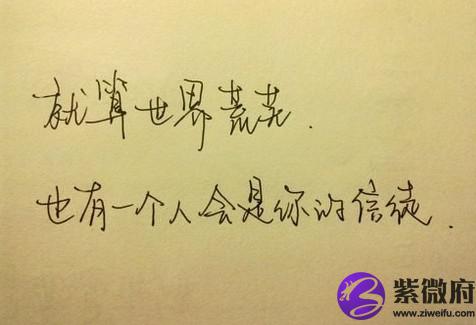 就算世界荒芜.
也有一个人会是你的信徒.
紫微府
www.ziweifu.com